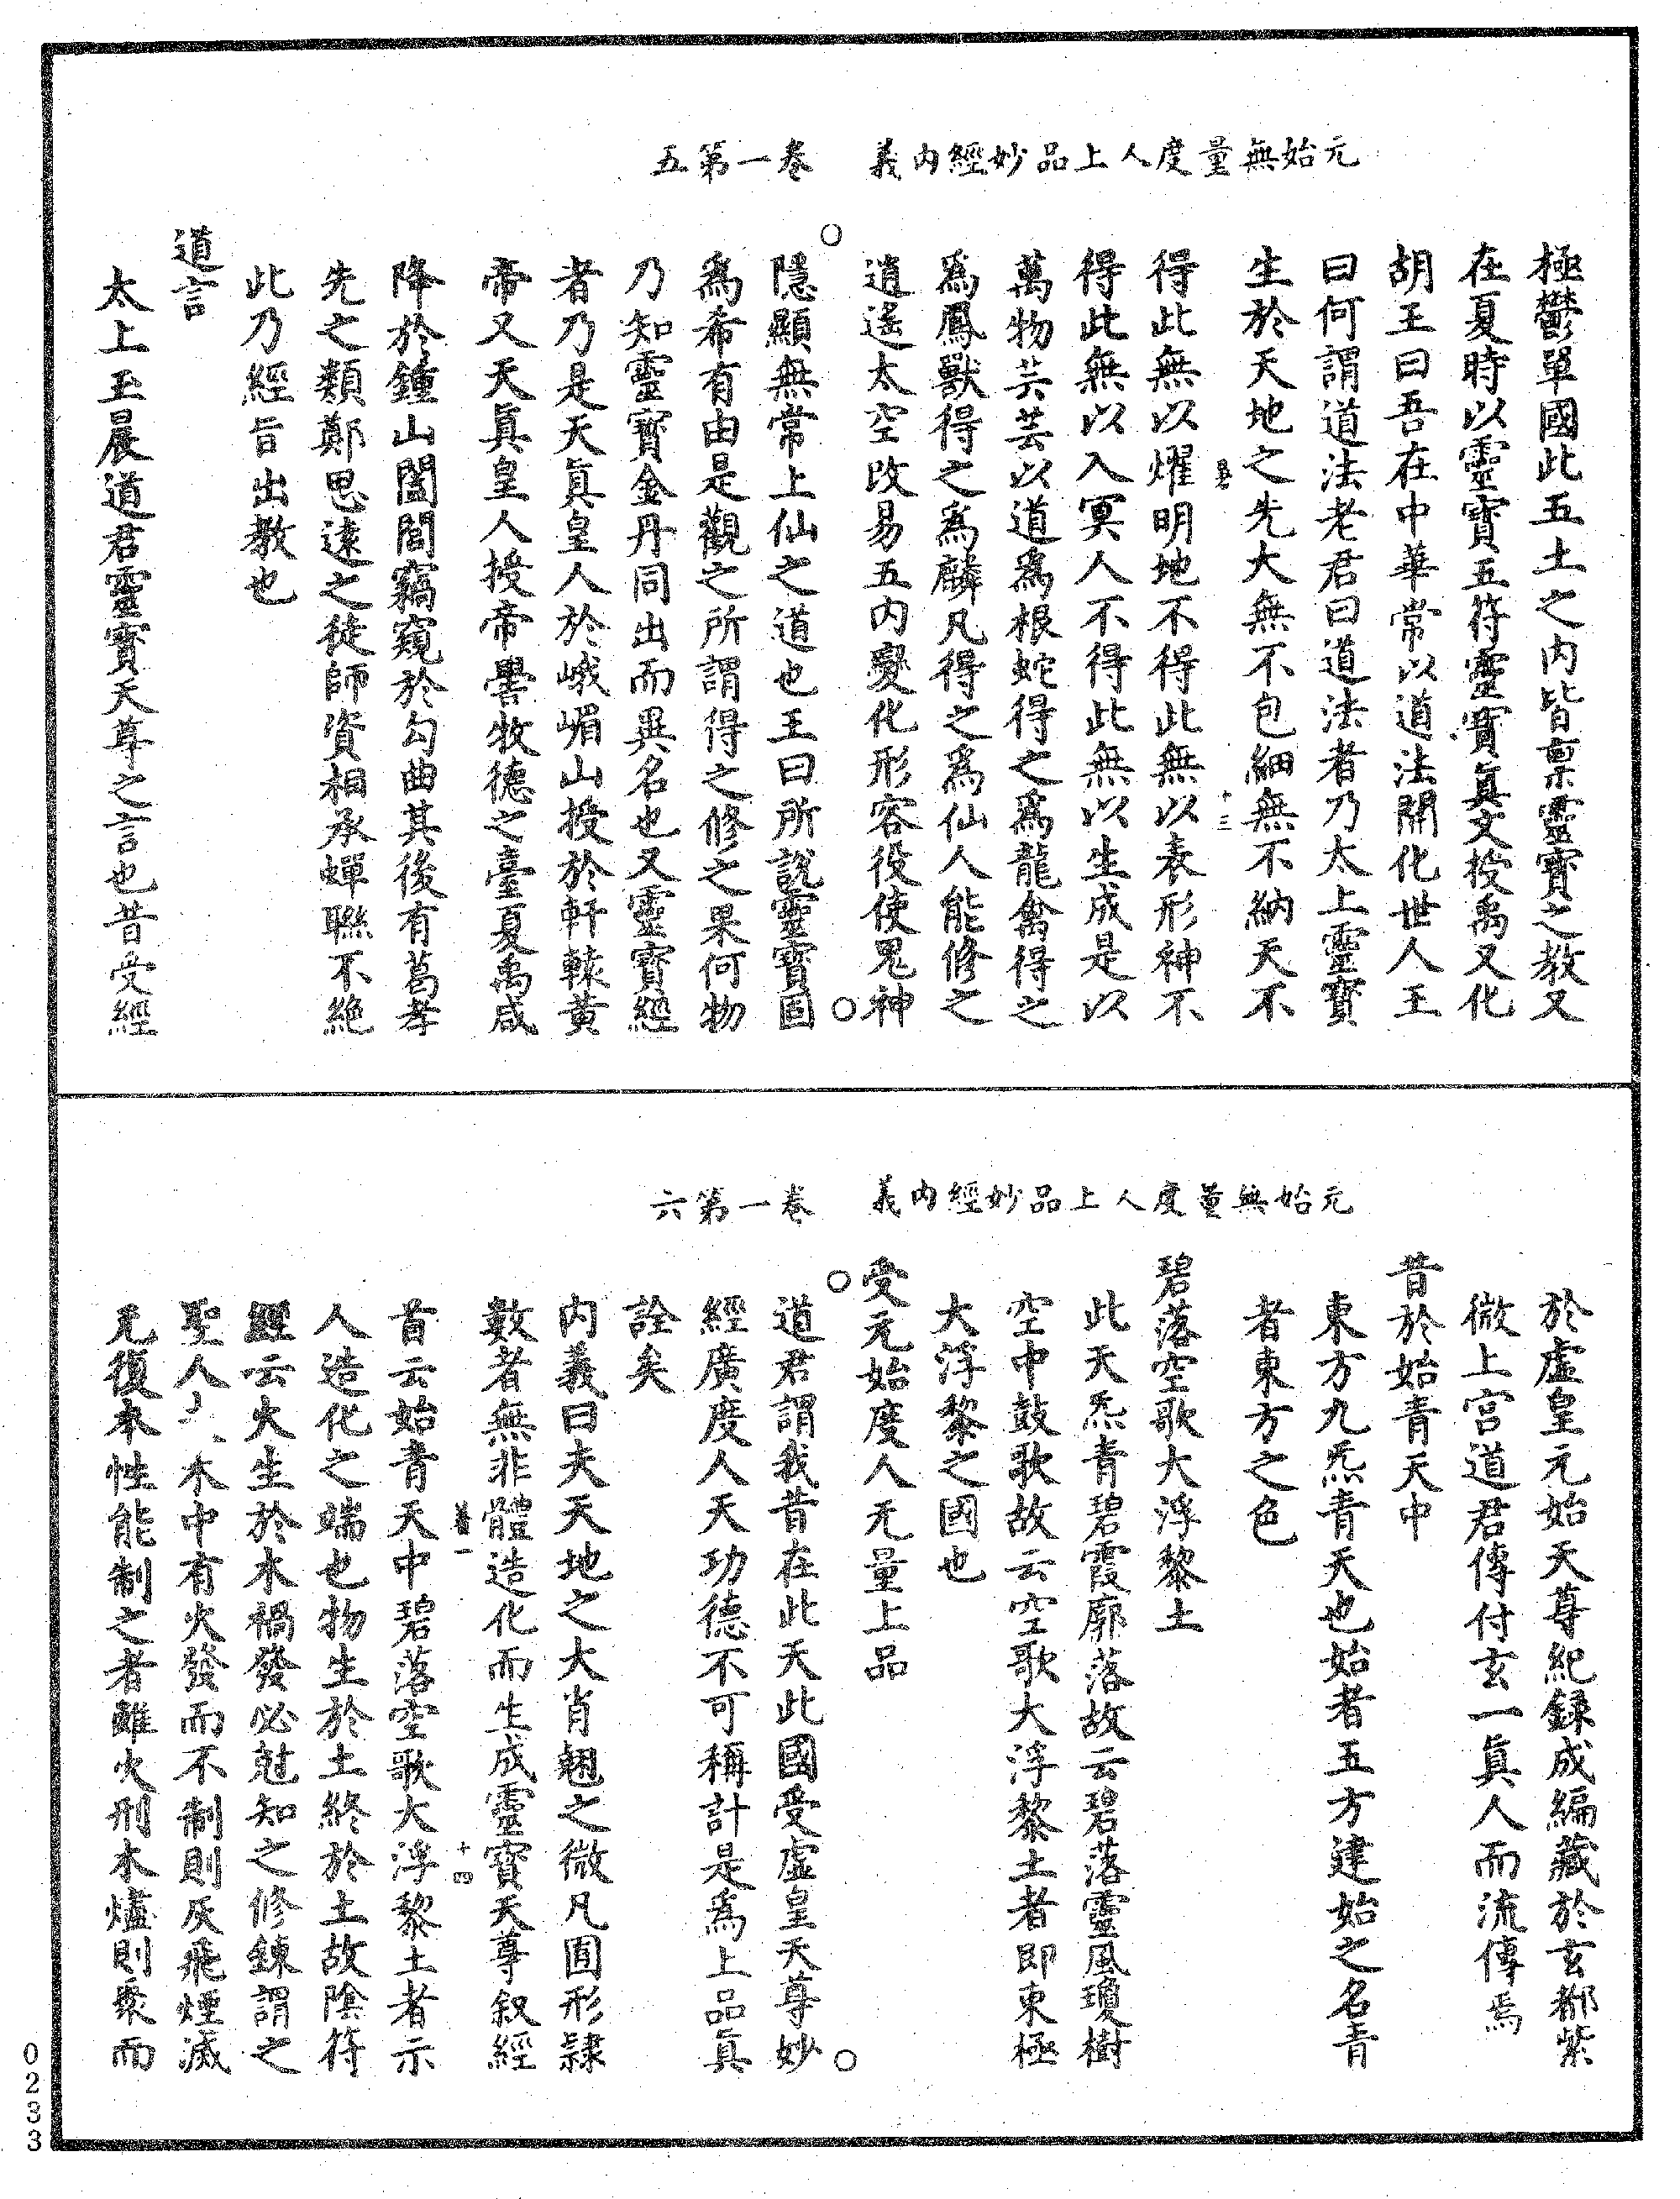 元始無量度人上品妙經內義　卷一第五
極鬱單國此五土之內皆禀靈寶之教又
在夏時以靈寶五符靈寶真文授禹又化
胡王曰吾在中華常以道法開化世人王
曰何謂道法老君曰道法者乃太上靈寶
生於天地之先大無不包細無不納天不
十三
得此無以燿明地不得此無以表形神不
得此無以入冥人不得此無以生成是以
萬物芸芸以道為根蛇得之為龍禽得之
為鳳獸得之為麟凡得之為仙人能修之
逍遙太空改易五內變化形容役使鬼神
隱顯無常上仙之道也王曰所說靈寶固
為希有由是觀之所謂得之修之果何物
乃知靈寶金丹同出而異名也又靈寶經
者乃是天真皇人於峨嵋山授於軒轅黃
帝又天真皇人授帝嚳牧德之臺夏禹咸
降於鍾山闔閭竊窺於勾曲其後有葛孝
先之類鄭思遠之徒師資相承蟬聯不絕
此乃經旨出教也
道言
太上玉晨道君靈寶天尊之言也昔受經
元始無量度人上品妙經內義　卷一第六
於虛皇元始天尊紀錄成編藏於玄都紫
微上宮道君傳付玄一真人而流傳焉
昔於始青天中
東方九炁青天也始者五方建始之名青
者東方之色
碧落空歌大浮黎土
此天炁青碧霞廓落故云碧落靈風瓊樹
空中鼓歌故云空歌大浮黎土者即東極
大浮黎之國也
受元始度人无量上品
道君謂我昔在此天此國受虛皇天尊妙
經廣度人天功德不可稱計是為上品真
詮矣
內義曰夫天地之大肖翹之微凡囿形隸
數者無非體造化而生成靈寶天尊叙經
義一　十四
首云始青天中碧落空歌大浮黎土者示
人造化之端也物生於土終於土故陰符
經云火生於木禍發必尅知之修鍊謂之
聖人　木中有火發而不制則灰飛煙滅
无復本性能制之者雖火刑木爐則聚而
0233